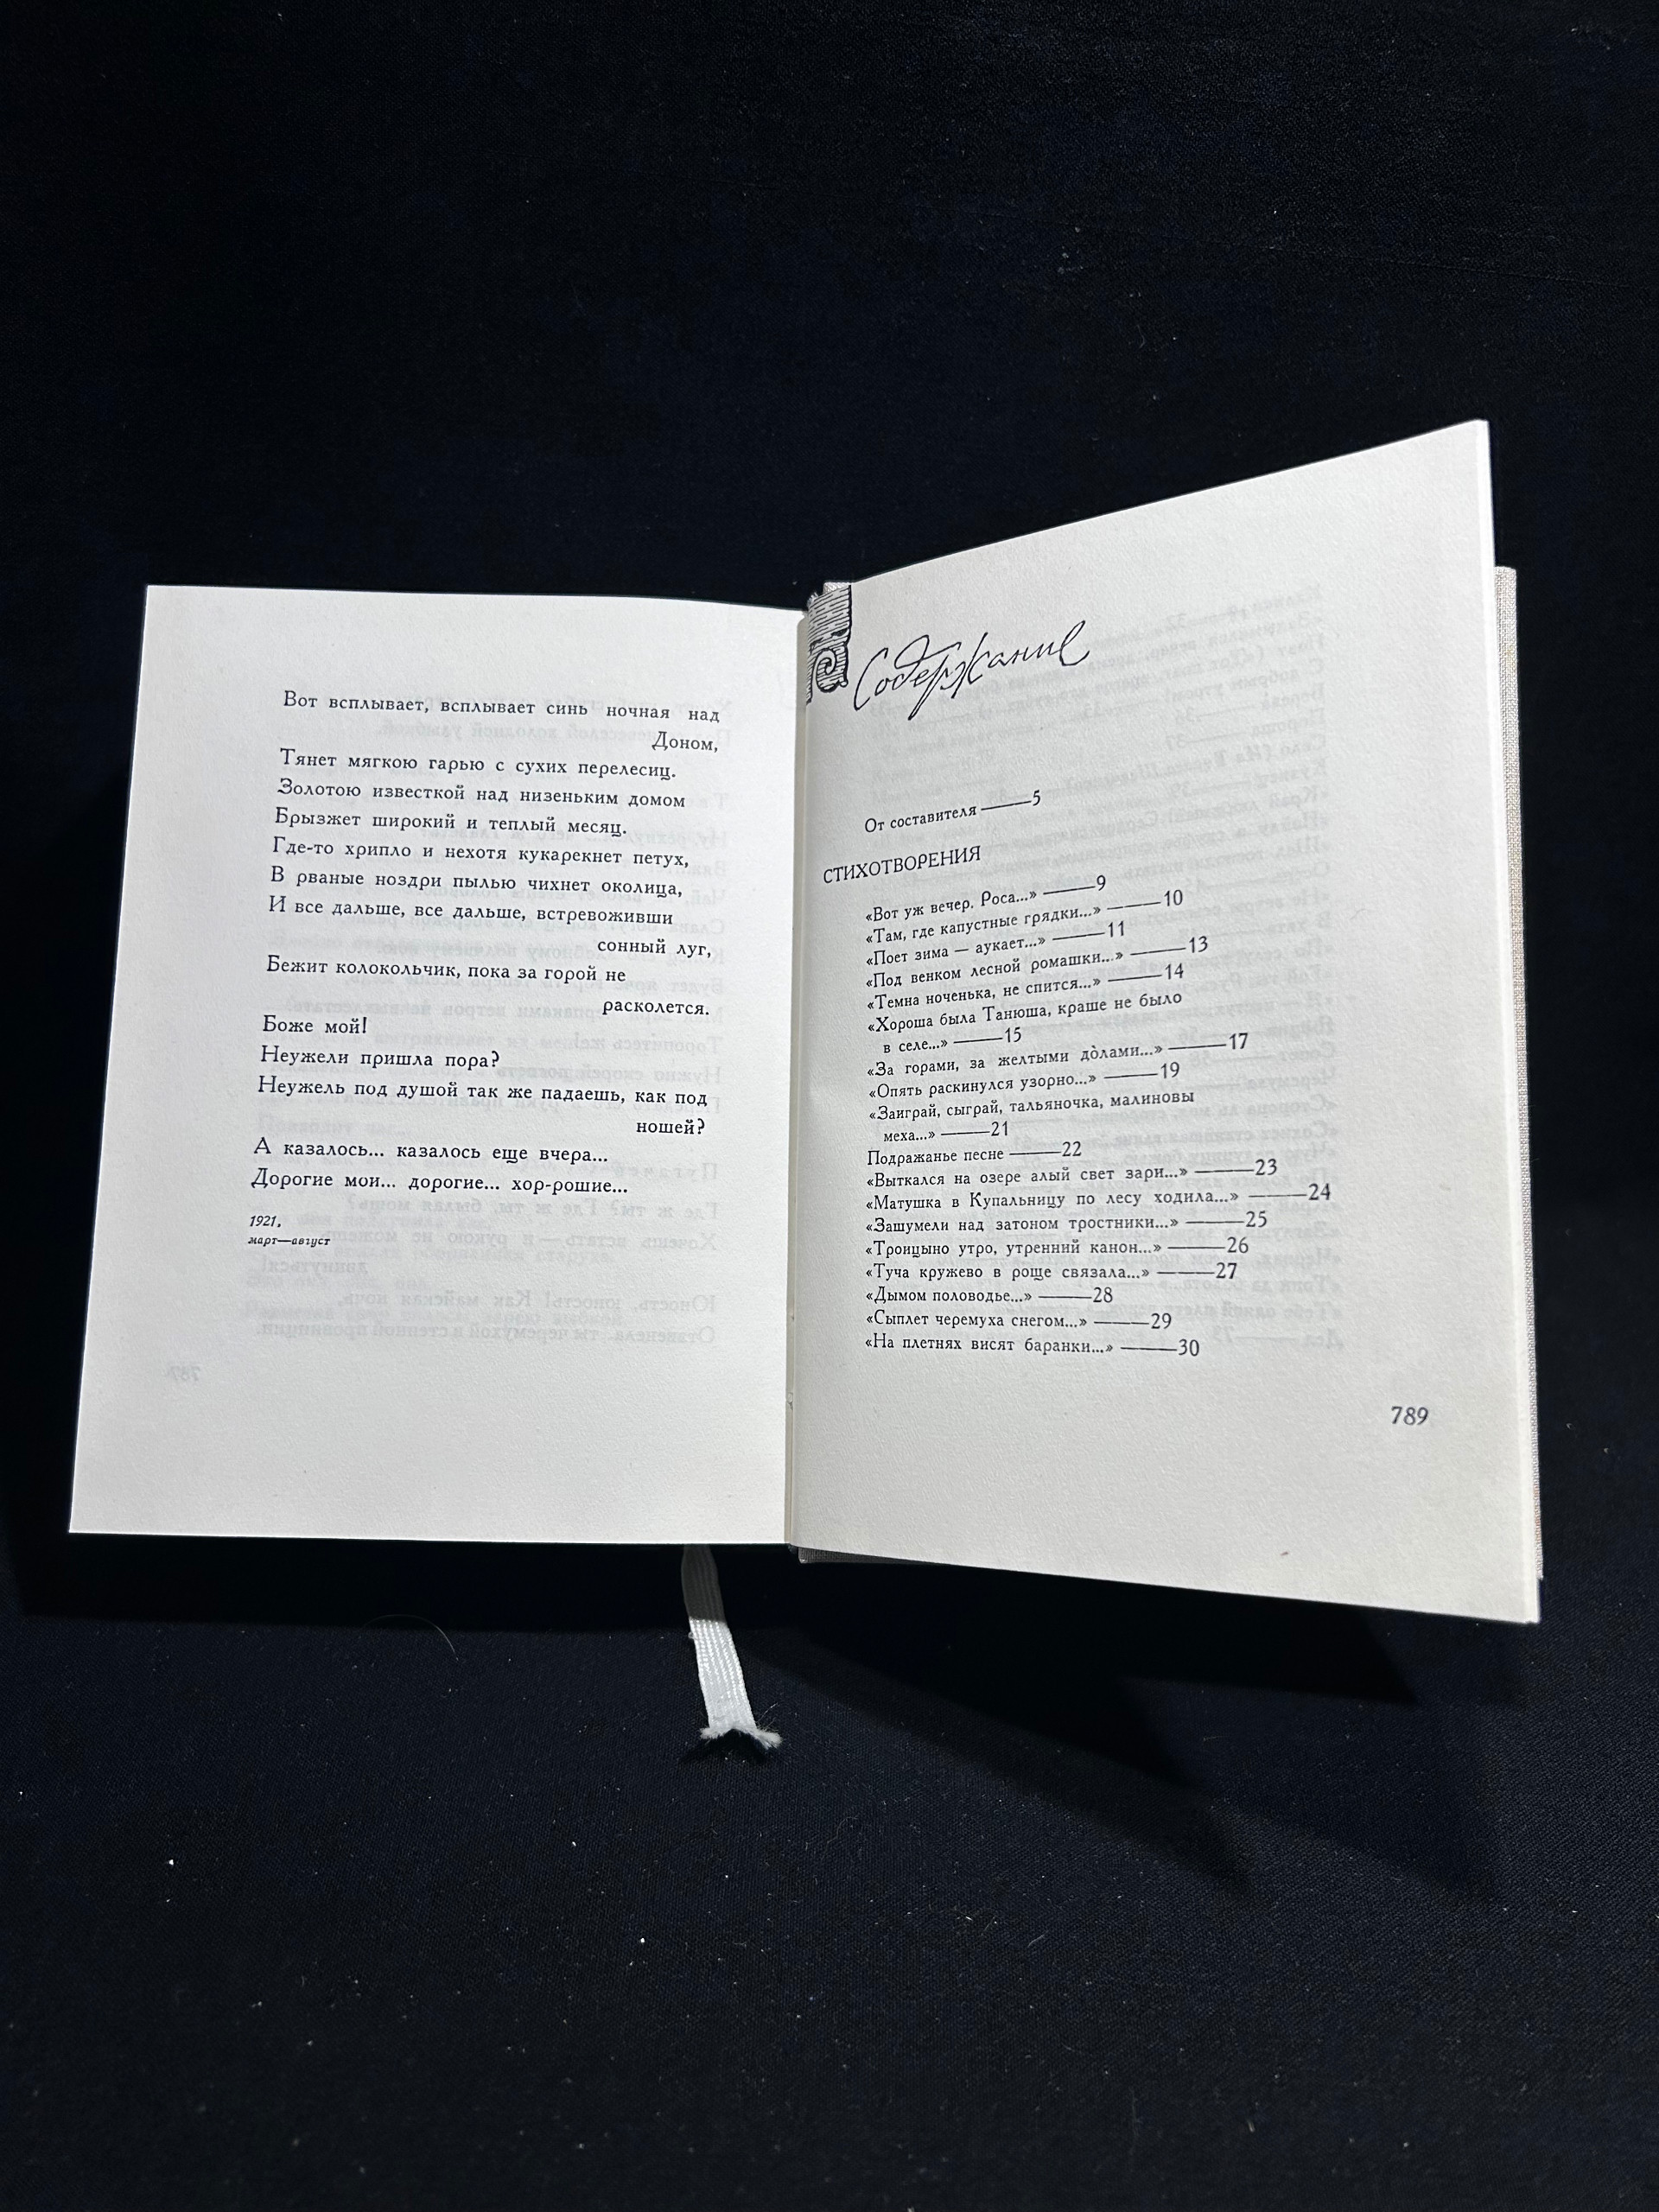 Вот всплывает, всплывает синь ночная над
Доном,
Тянет мягкою гарью с сухих перелесиц.
Золотою известкой над низеньким домом
Брызжет широкий и теплый месяц.
Где-то хрипло и нехотя кукарекнет петух,
В рваные ноздри пылью чихнет околица,
И все дальше, все дальше, встревоживши
сонный луг,
Бежит колокольчик, пока за горой не
расколется.
Боже мой!
Неужели пришла пора?
Неужель под душой так же падаешь, как под
ношей?
А казалось... казалось еще вчера...
Дорогие мои... дорогие... хор-рошие...
1921,
март—август
Содержание
От составителя ——— 5
СТИХОТВОРЕНИЯ
«Вот уж вечер. Роса...» ——— 9
«Там, где капустные грядки...» ——— 10
«Поет зима — аукает...» ——— 11
«Под венком лесной ромашки...» ——— 13
«Темна ноченька, не спится...» ——— 14
«Хороша была Танюша, краше не было
в селе...» ——— 15
«За горами, за желтыми до̀лами...» ——— 17
«Опять раскинулся узорно...» ——— 19
«Заиграй, сыграй, тальяночка, малиновы
меха...» ——— 21
Подражанье песне ——— 22
«Выткался на озере алый свет зари...» ——— 23
«Матушка в Купальницу по лесу ходила...» ——— 24
«Зашумели над затоном тростники...» ——— 25
«Троицыно утро, утренний канон...» ——— 26
«Туча кружево в роще связала...» ——— 27
«Дымом половодье...» ——— 28
«Сыплет черемуха снегом...» ——— 29
«На плетнях висят баранки...» ——— 30
789